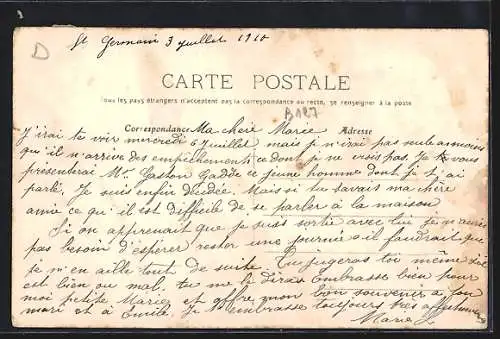 D
St Germain 3 juillet 1910
CARTE POSTALE
Tous les pays étrangers n'acceptent pas la correspondance au recto, se renseigner à la poste
B127
Correspondance Ma chère Marie Adresse
J'irai te voir mercredi 6 juillet mais je n'irai pas seule à moins
qu'il n'arrive des empêchements ce dont je ne crois pas. Je te
présenterai Mr Gaston ce jeune homme dont je t'ai
parlé, Je suis enfin décidée. Mais si tu savais ma chère
amie ce qu'il est difficile de se parler à la maison
Si on apprenait que je suis sortie avec lui je n'aurais
pas besoin d'espérer rester une journée il faudrait que
je m'en aille tout de suite. Tu jugeras toi même s'il
est bien ou mal. tu me le diras Embrasse bien pour
moi petite Marie et offre mon bon souvenir à ton
mari et à Je t'embrasse toujours très affectueus
Marie